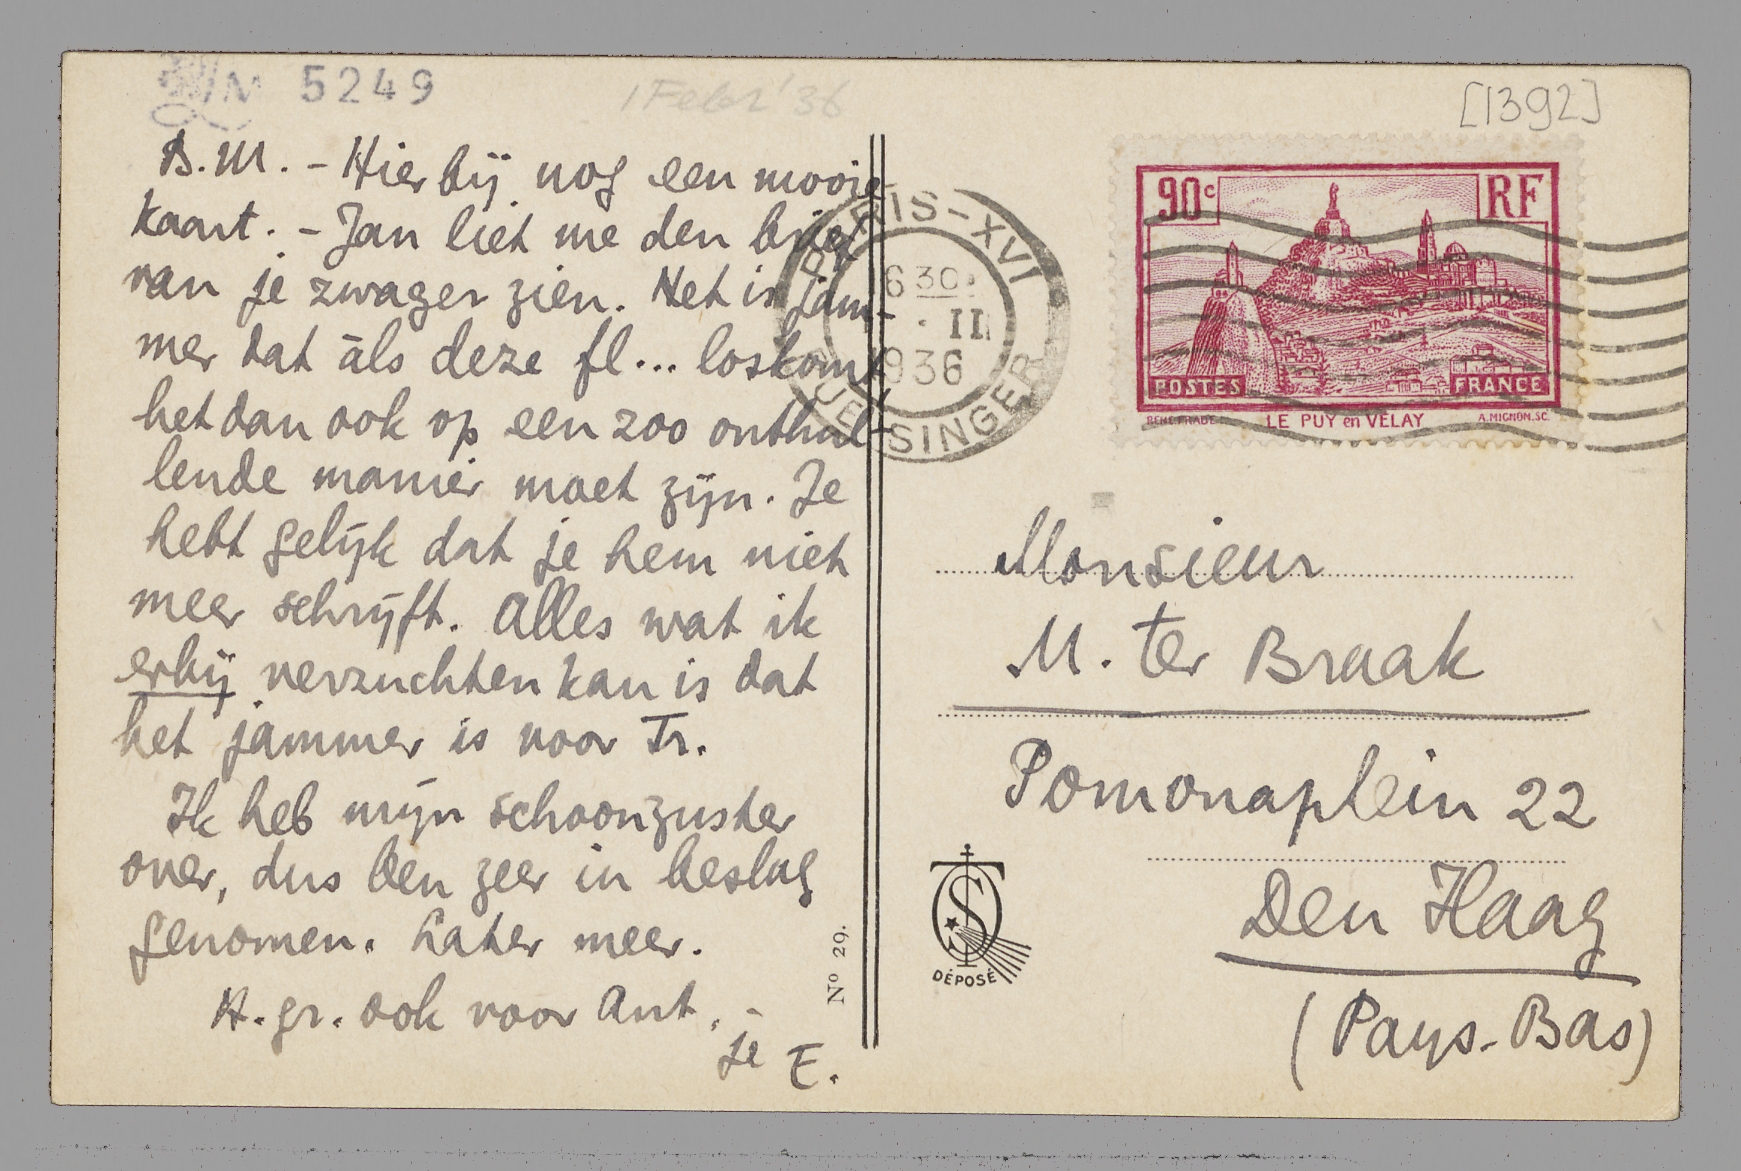 5249
1 Febr '36
[1392]
B.M. - Hierbij nog een mooie
kaart. - Jan liet me den brief
van je zwager zien. Het is jam-
mer dat àls deze fl... loskomt
het dan ook op een zoo onthul-
lende manier moet zijn. Je
hebt gelijk dat je hem niet
meer schrijft. Alles wat ik
erbij verzuchten kan is dat
het jammer is voor Tr.
Ik heb mijn schoonzuster
over, dus ben zeer in beslag
genomen. Later meer.
H. gr. ook voor Ant, -
je E.
Nº 29.
PARIS-XVI
6 30
II
1936
SINGER
90c RF
POSTES FRANCE
LE PUY en VELAY A.MIGNON.SC.
Monsieur
M. ter Braak
Pomonaplein 22
Den Haag
(Pays-Bas)
DÉPOSÉ